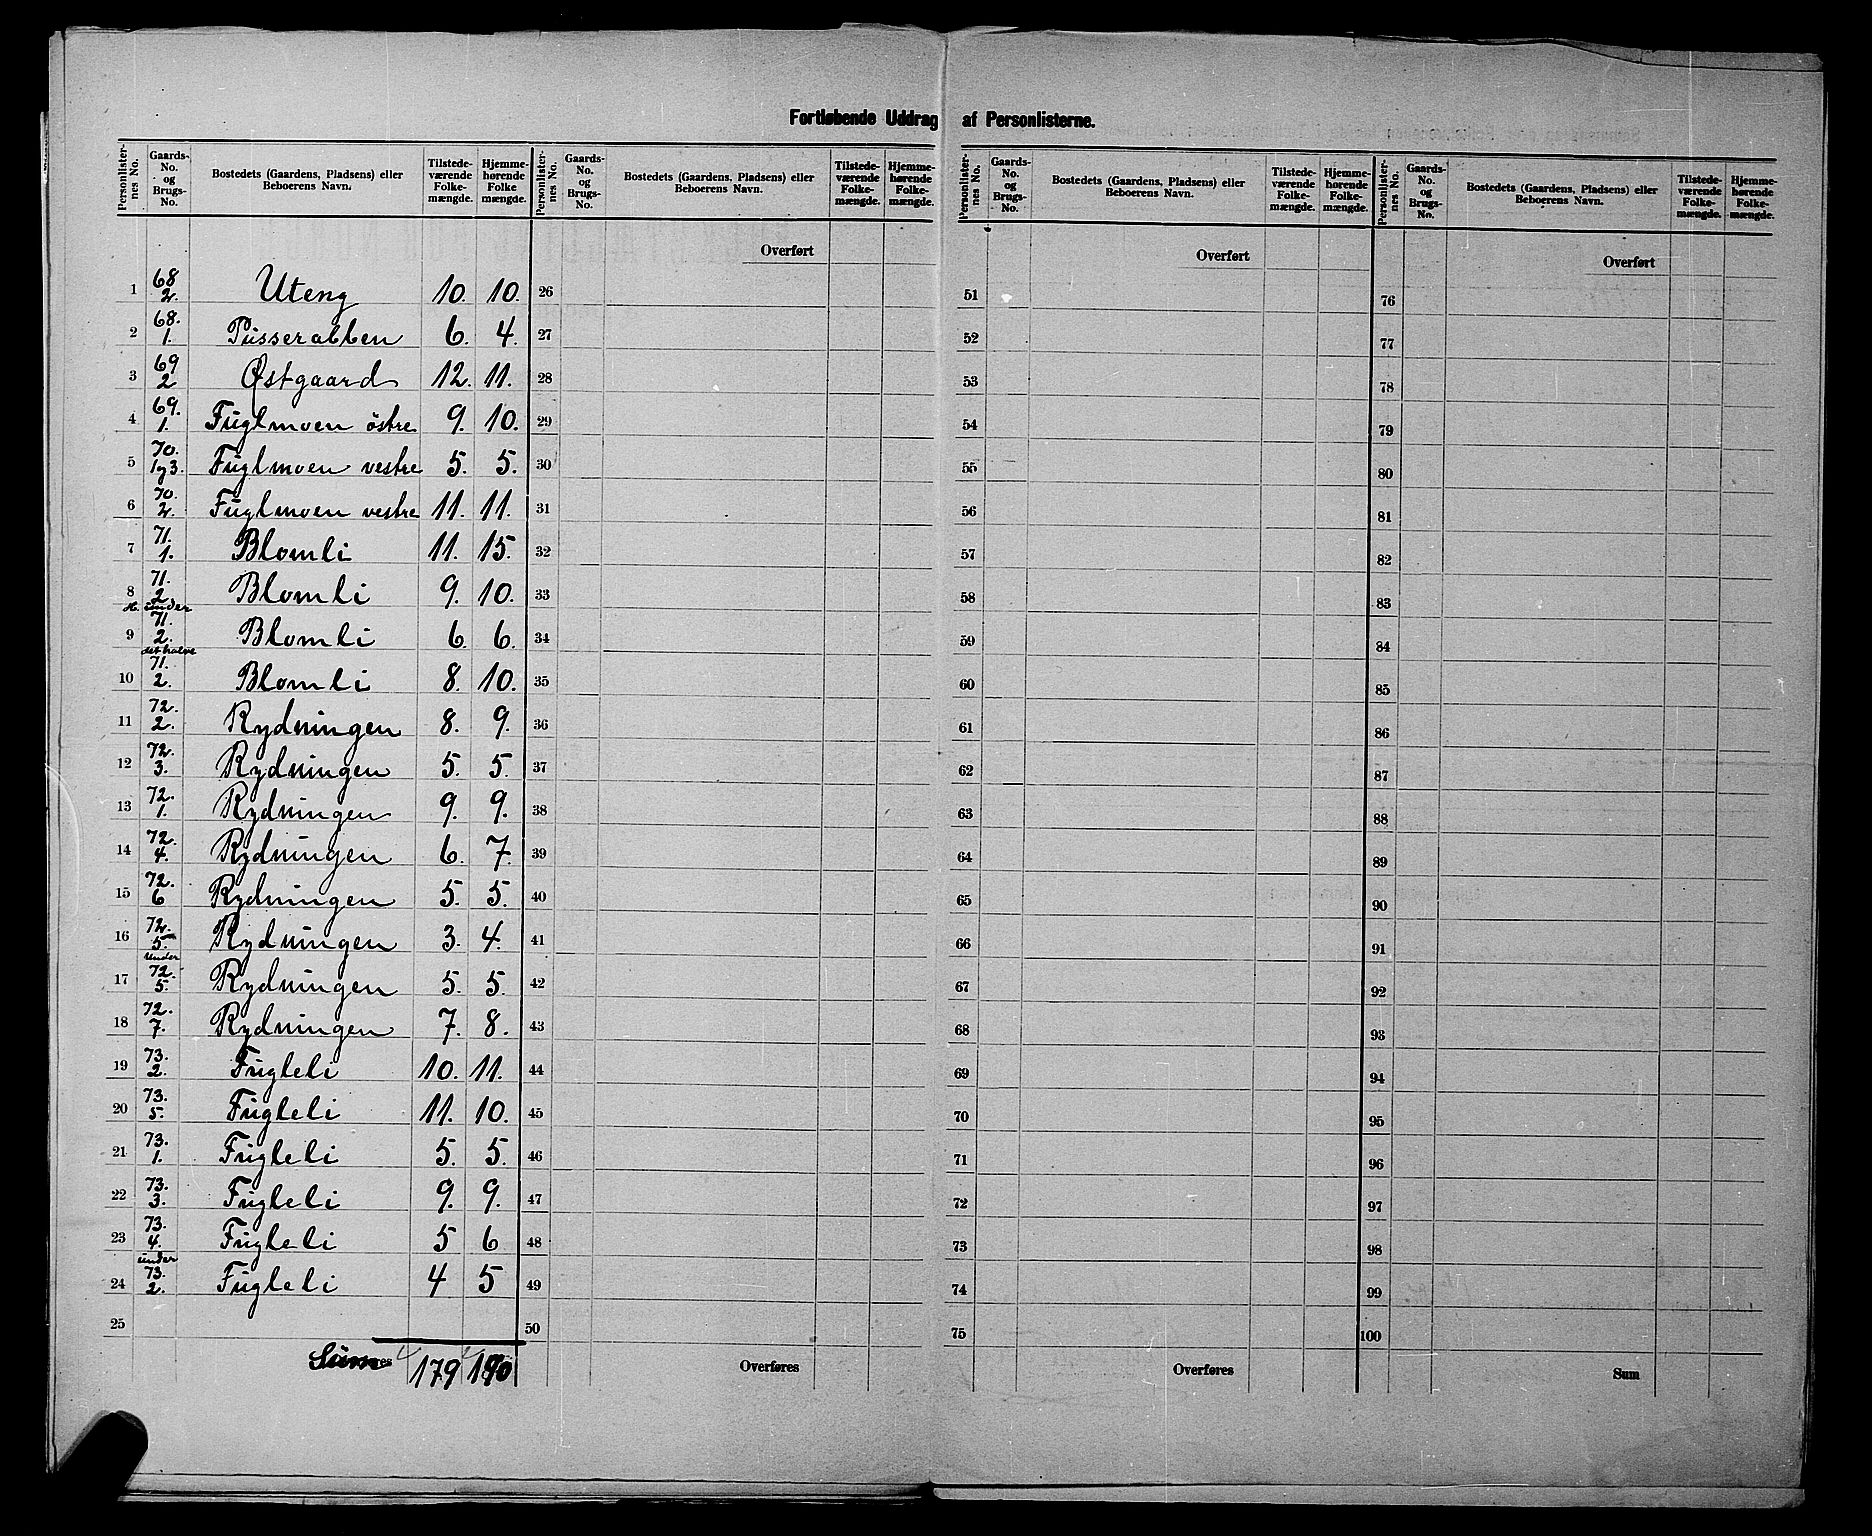 Fortløbende Uddrag af Personlisterne.
Personlister-nes No. | Gaards-No. og Brugs-No. | Bostedets (Gaardens, Pladsens) eller Beboerens Navn. | Tilstede-værende Folke-mængde. | Hjemme-hørende Folke mængde.
1 68 2. Uteng 10. 10.
2 68. 1. Pusserabben 6. 4.
3 69 2 Østgaard 12. 11.
4 69. 1. Fuglmoen östre 9. 10.
5 70. 1 og 3. Fuglmoen vestre 5. 5.
6 70. 2. Fuglmoen vestre 11. 11.
7 71. 1. Blomli 11. 15.
8 71. 2. Blomli 9. 10.
under
9 71. 2. Blomli 6. 6.
det halve
10 71. 2. Blomli 8. 10.
11 72. 2. Rydningen 8. 9.
12 72. 3. Rydningen 5. 5.
13 72. 1. Rydningen 9. 9.
14 72. 4. Rydningen 6. 7.
15 72. 6 Rydningen 5. 5.
16 72. 5. Rydningen 3. 4.
under
17 72. 5. Rydningen 5. 5.
18 72. 7. Rydningen 7. 8.
19 73. 2. Fugleli 10. 11.
20 73. 5. Fugleli 11. 10.
21 73. 1. Fugleli 5. 5.
22 73. 3. Fugleli 9. 9.
23 73. 4. Fugleli 5 6
under
24 73. 2. Fugleli 4 5
25
Sum 179 190
Personlister-nes No. | Gaards-No. og Brugs-No. | Bostedets (Gaardens, Pladsens) eller Beboerens Navn. | Tilstede-værende Folke-mængde. | Hjemme-hørende Folke-mængde.
Overført
26
27
28
29
30
31
32
33
34
35
36
37
38
39
40
41
42
43
44
45
46
47
48
49
50
Overføres
Personlister-nes No. | Gaards-No. og Brugs-No. | Bostedets (Gaardens, Pladsens) eller Beboerens Navn. | Tilstede-værende Folke-mængde. | Hjemme-hørende Folke-mængde.
Overført
51
52
53
54
55
56
57
58
59
60
61
62
63
64
65
66
67
68
69
70
71
72
73
74
75
Overføres
Personlister-nes No. | Gaards-No. og Brugs-No. | Bostedets (Gaardens, Pladsens) eller Beboerens Navn. | Tilstede-værende Folke-mængde. | Hjemme-hørende Folke-mængde.
Overført
76
77
78
79
80
81
82
83
84
85
86
87
88
89
90
91
92
93
94
95
96
97
98
99
100
Sum